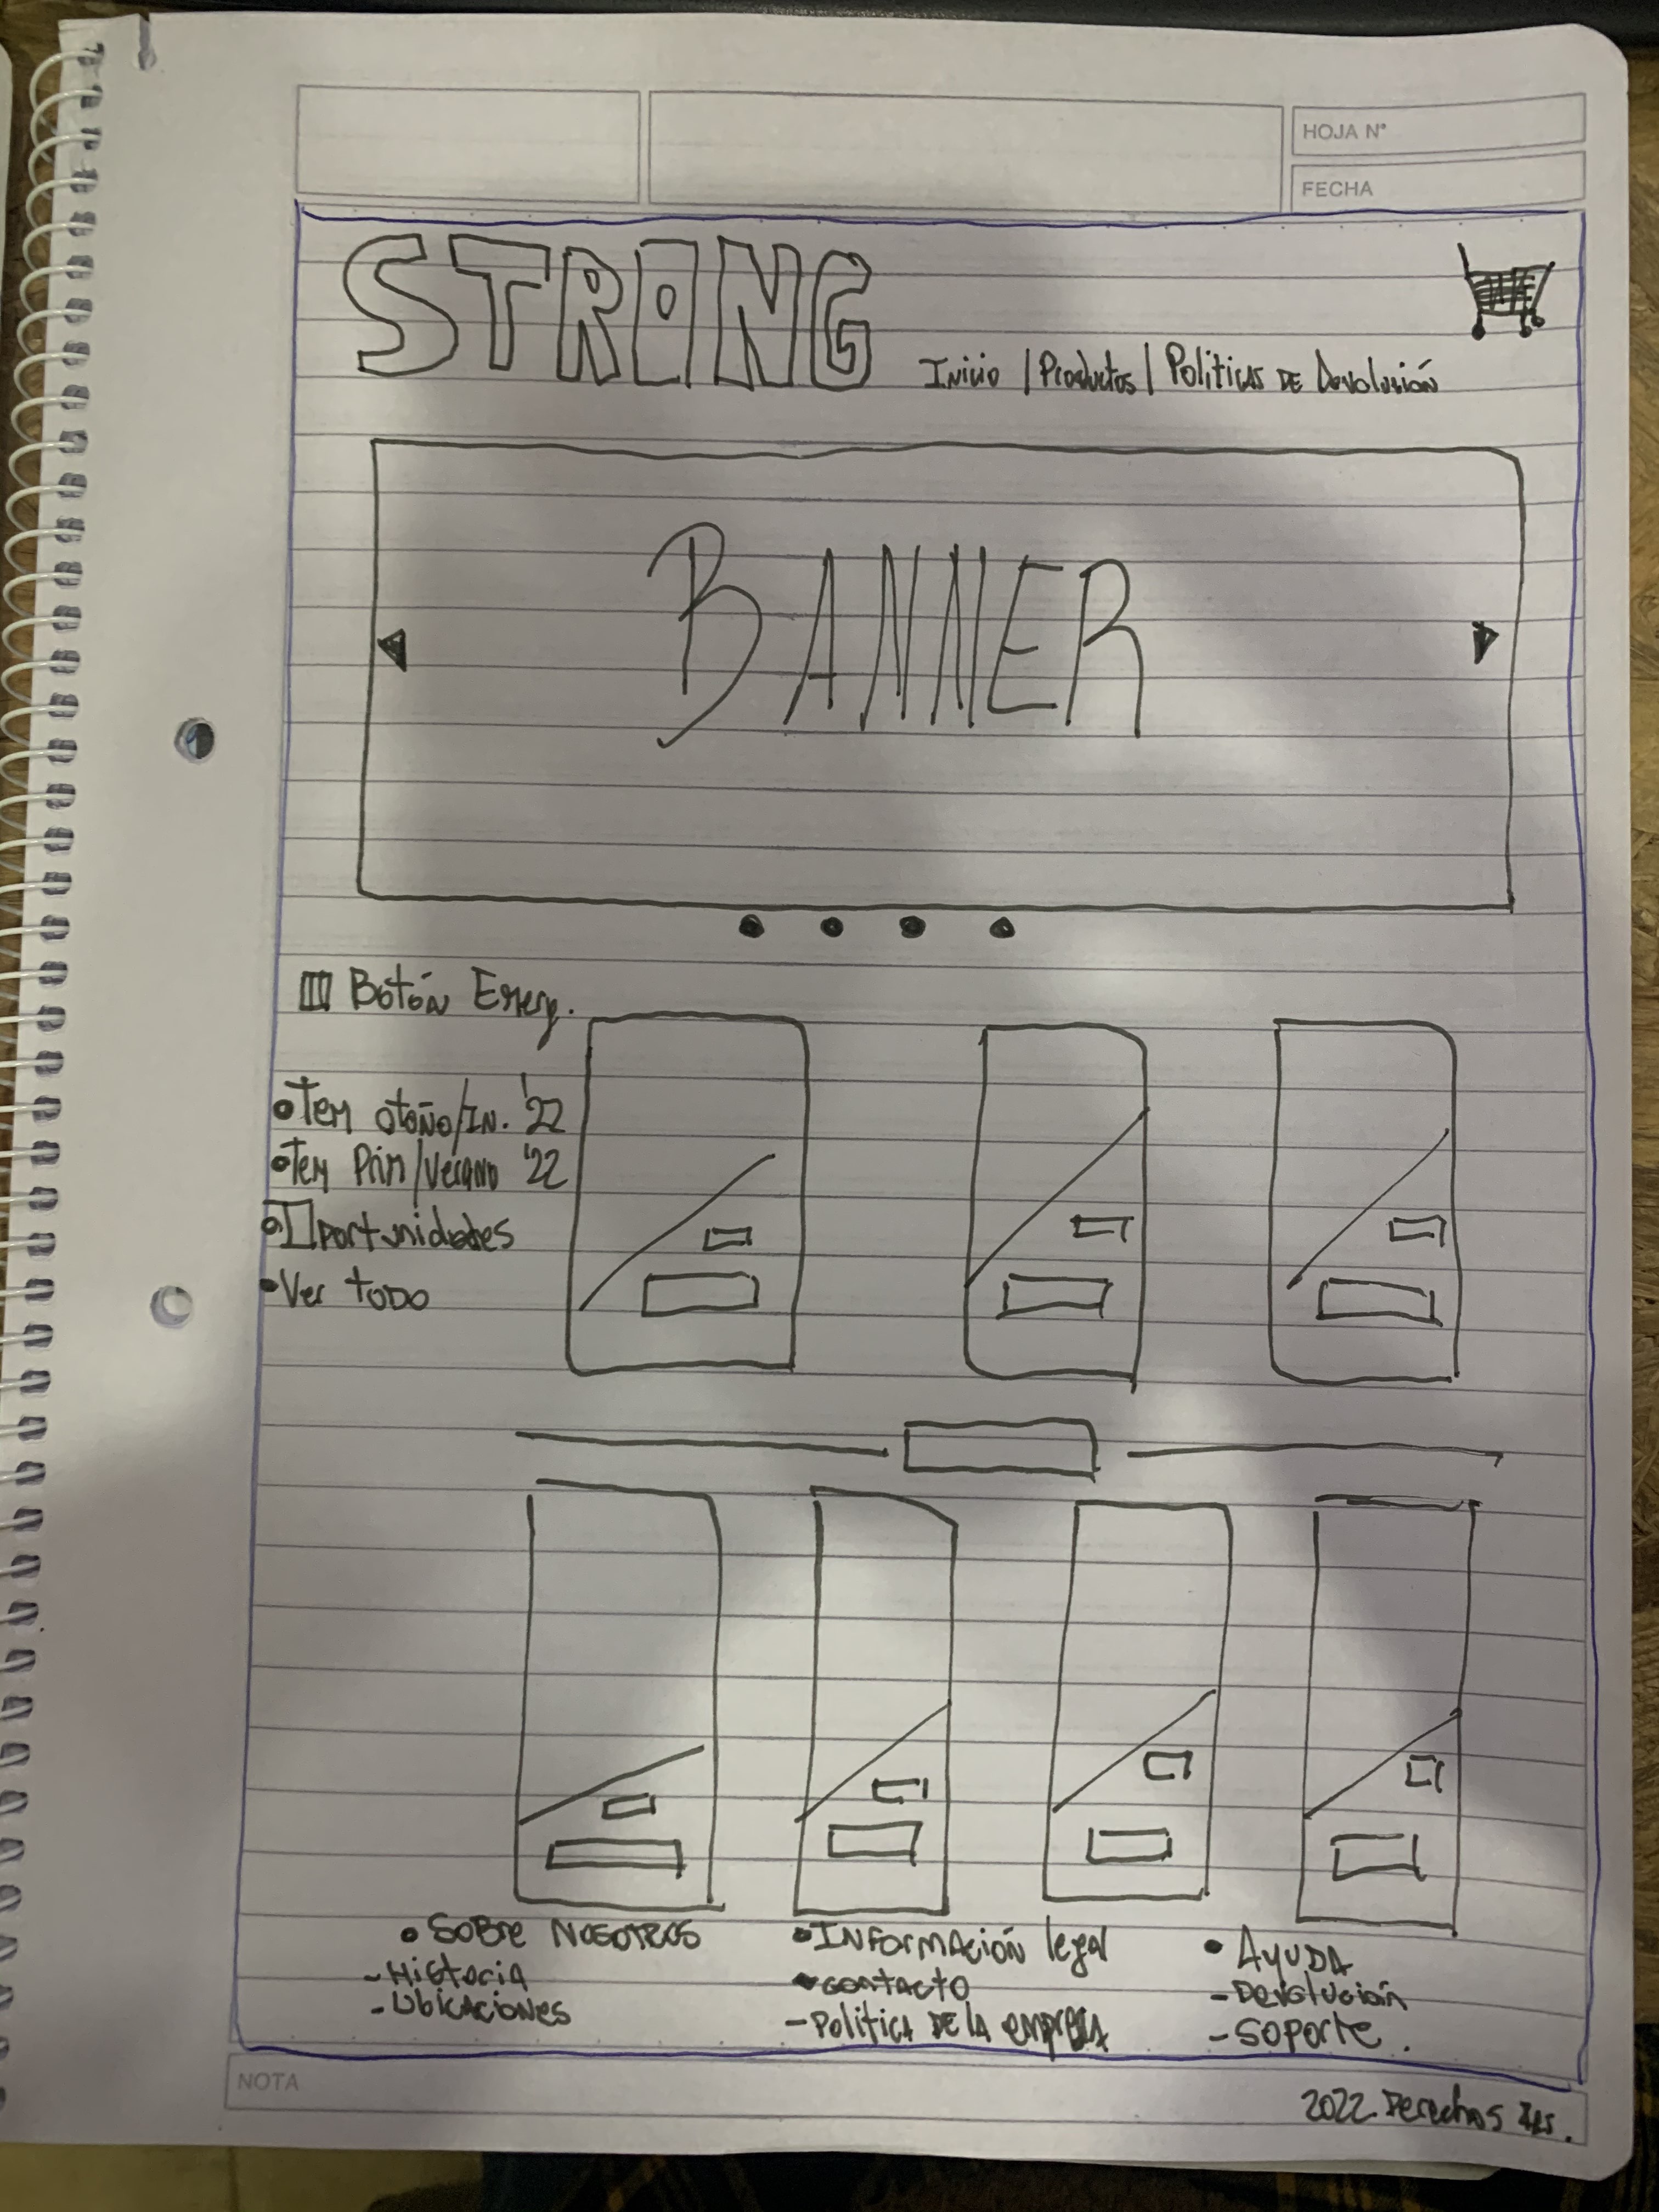 HOJA N°
FECHA
STRONG
Inicio | Productos | Politicas DE Devolución
BANNER
Botón Emerg.
Tem otoño/IN. '22
Tem Prim/Verano '22
Oportunidades
Ver TODO
SOBRE NOSOTROS
- Historia
- Ubicaciones
INFORMACIÓN legal
- CONTACTO
- Politica DE la empresa
AYUDA
- Devolución
- SOPORTE.
NOTA
2022 Derechos Res.